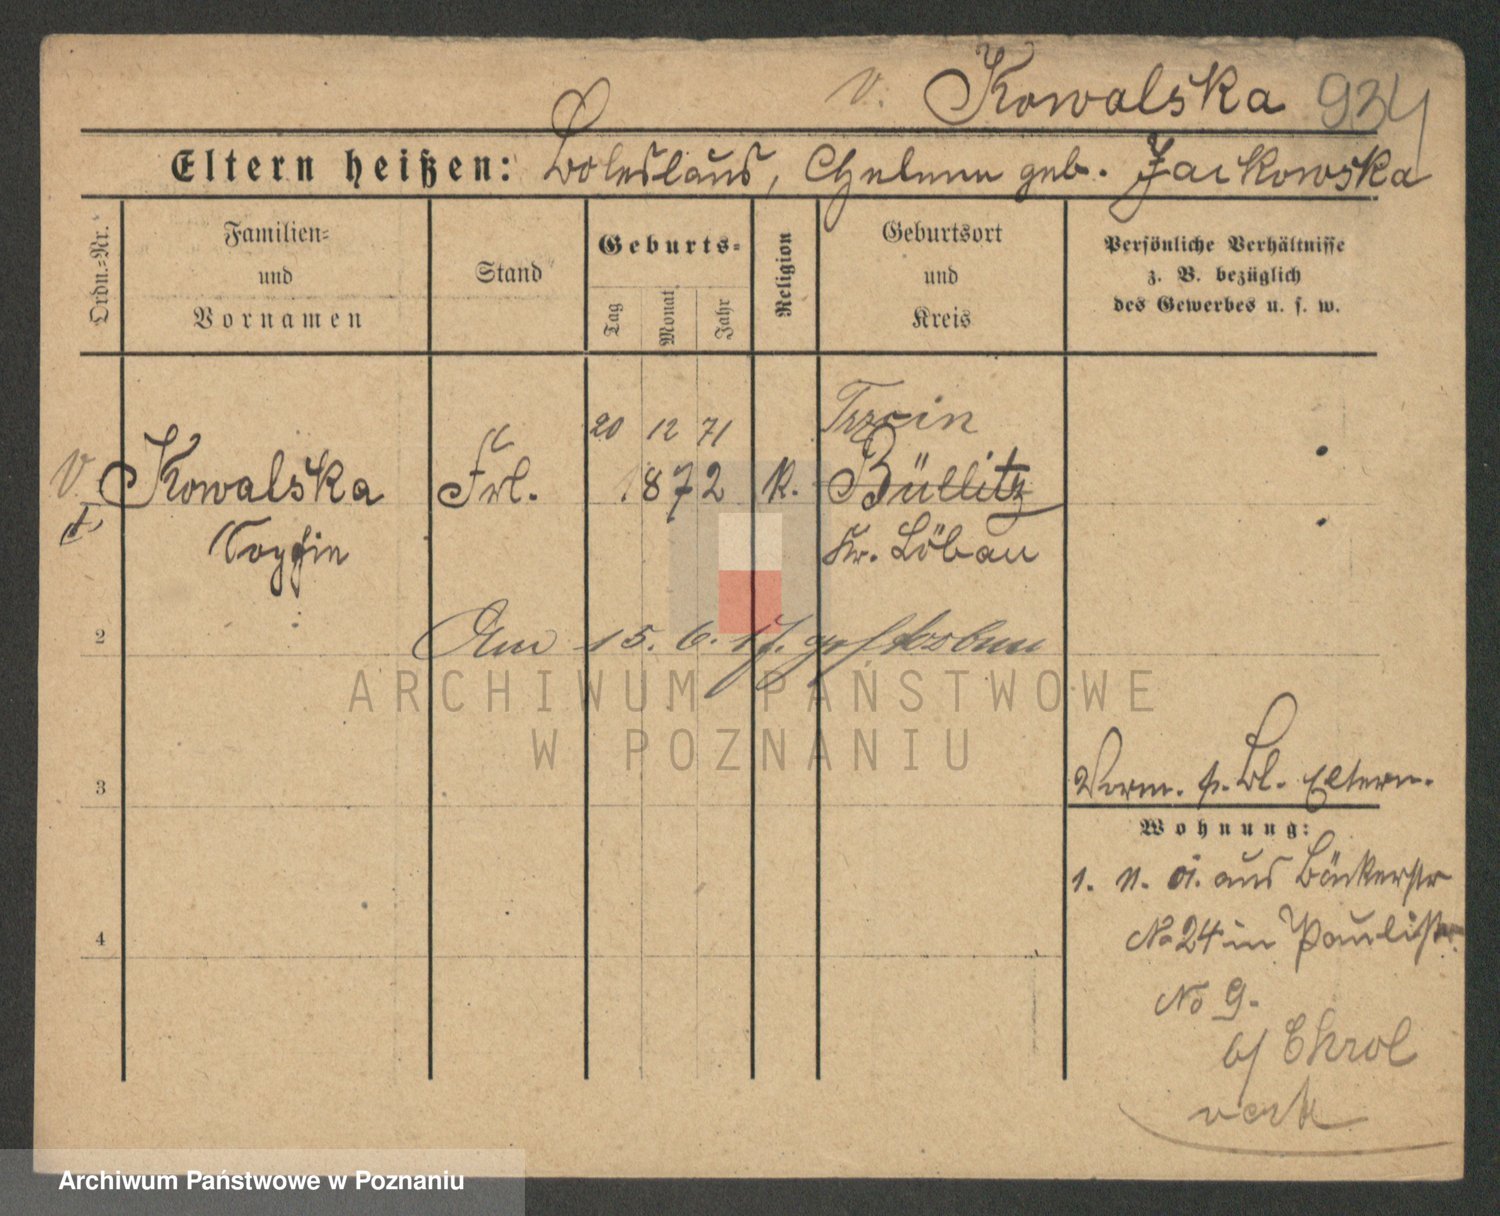 v. Kowalska 934
Eltern heißen: Boleslaus, Helene geb. Jackowska
Ordn.=Nr.
Familien=
und
Vornamen
Stand
Geburts=
Tag
Monat
Jahr
Religion
Geburtsort
und
Kreis
Persönliche Verhältnisse
z. B. bezüglich
des Gewerbes u. s. w.
20 12 71 Trzcin
v. Kowalska Frl. 1872 K. Büllitz
Sophie Kr. Löbau
2
Am 15. 6. 17. gestorben
ARCHIWUM PAŃSTWOWE
W POZNANIU
3
Verm. s. Bl. Eltern.
Wohnung:
1. n. aus Bäckerstr
No 24 in Paulistr.
No 9.
b/ Chrol
4
Archiwum Państwowe w Poznaniu